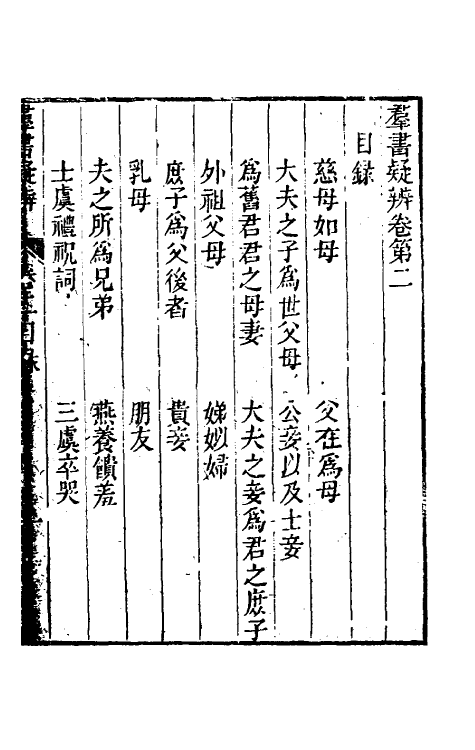 羣書疑辨卷第二
目録
慈母如母　父在爲母
大夫之子爲世父母　公妾以及士妾
爲舊君君之母妻　大夫之妾爲君之庶子
外祖父母　娣姒婦
庶子爲父後者　貴妾
乳母　朋友
夫之所爲兄弟　燕養饋羞
士虞禮祝詞　三虞卒哭
羣書疑辨